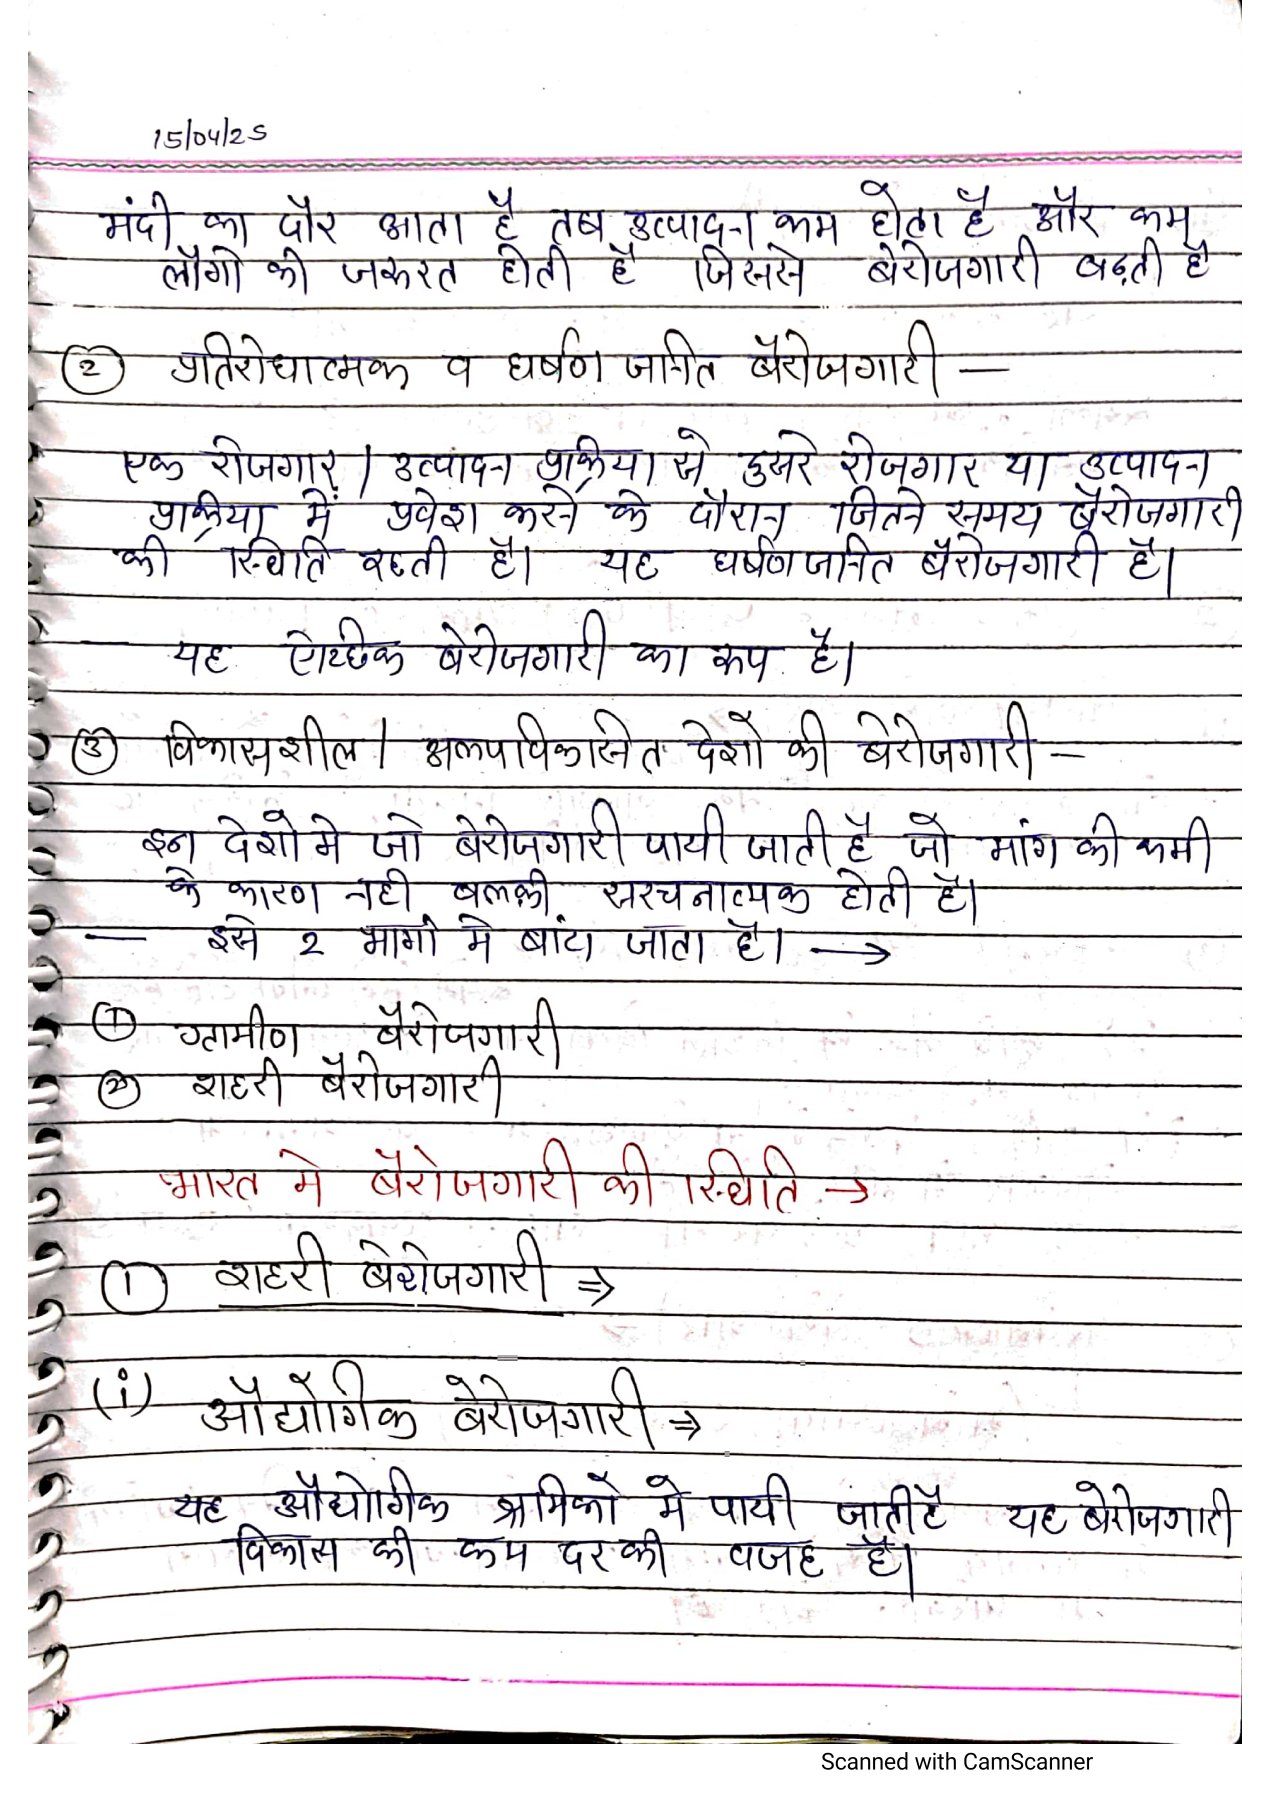 15/04/25
मंदी का दौर आता है तब उत्पादन कम होता है और कम
लोगों की जरूरत होती है जिससे बेरोजगारी बढ़ती है
② प्रतिरोधात्मक व घर्षण जनित बैरोजगारी —
एक रोजगार / उत्पादन प्रक्रिया से दुसरे रोजगार या उत्पादन
प्रक्रिया में प्रवेश करने के दौरान जितने समय बैरोजगारी
की स्थिति रहती है। यह घर्षण जनित बैरोजगारी है।
यह ऐच्छिक बेरोजगारी का रूप है।
③ विकासशील / अल्पविकसित देशों की बेरोजगारी —
इन देशो मे जो बेरोजगारी पायी जाती है जो मांग की कमी
के कारण नही बलकी सरचनात्मक होती है।
— इसे 2 भागों मे बांटा जाता है। →
① ग्रामीण बैरोजगारी
② शहरी बैरोजगारी
भारत मे बैरोजगारी की स्थिति →
① शहरी बेरोजगारी ⇒
(i) औद्योगिक बेरोजगारी ⇒
यह औद्योगिक श्रमिकों मे पायी जाती है यह बेरोजगारी
विकास की कम दर की वजह है।
Scanned with CamScanner